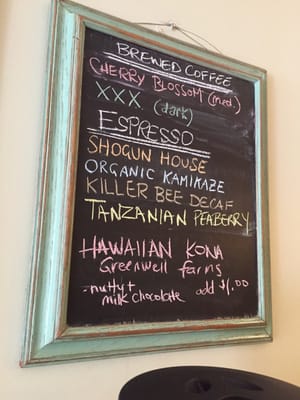 BREWED COFFEE
CHERRY BLOSSOM (med.)
XXX (dark)
ESPRESSO
SHOGUN HOUSE
ORGANIC KAMIKAZE
KILLER BEE DECAF
TANZANIAN PEABERRY
HAWAIIAN KONA
Greenwell farms
-nutty +
milk chocolate add $1.00